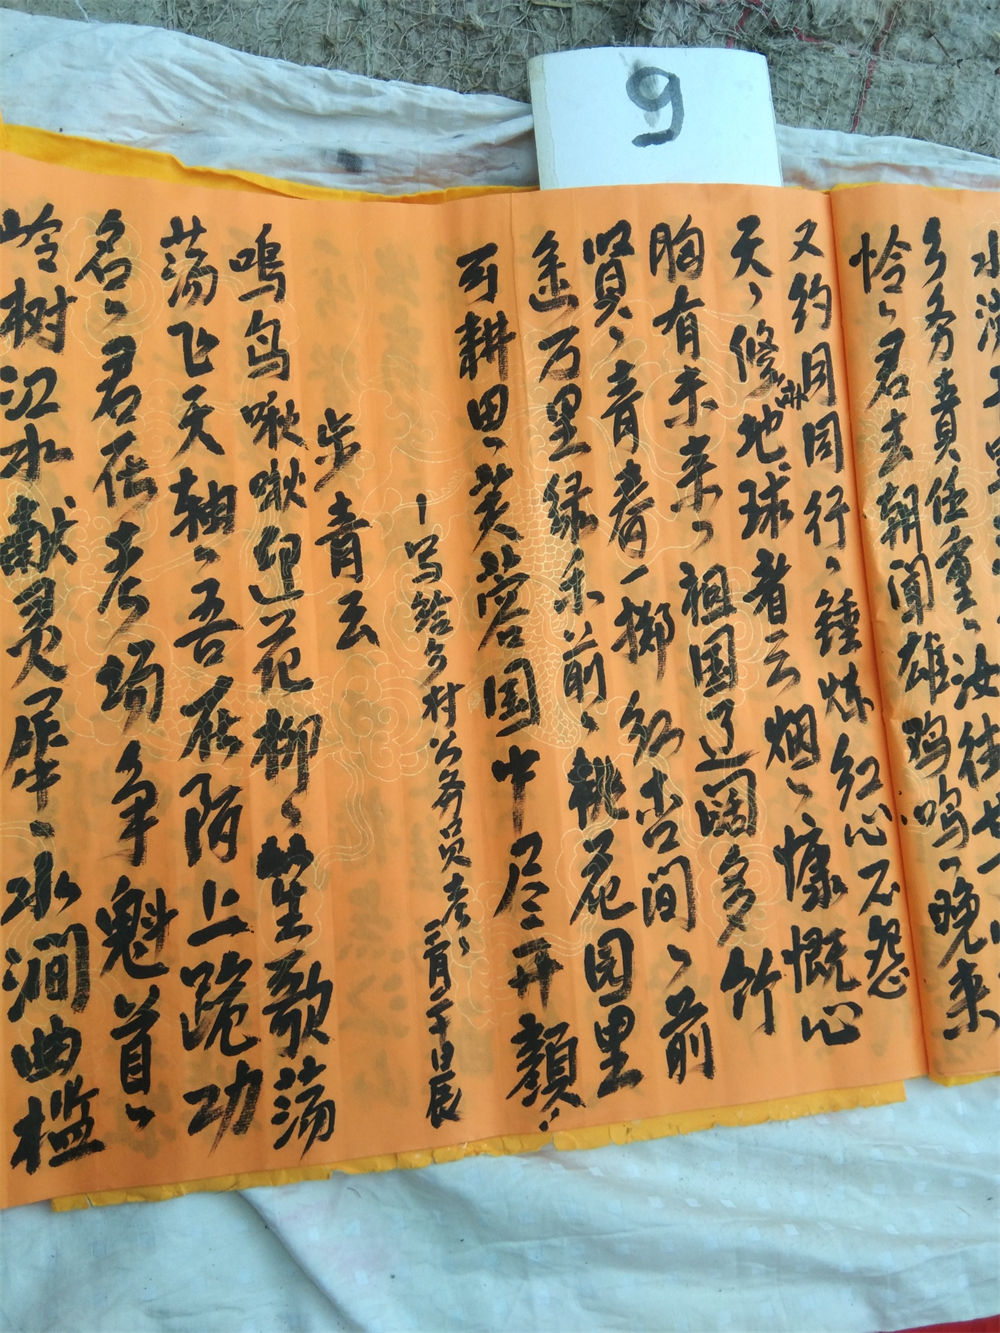 9
乡务责任重、汝往
怜、君去朝闻雄鸡鸣、晚来
又约月同行、锤炼红心不怨
天、修水地球者云烟、慷慨心
胸有未来、祖国辽阔多竹
贤、青青者一掷乡书间、前
途万里绿禾前、桃花园里
可耕田、芙蓉国中尽开颜、
—写给乡村公务员考、二月二十日晨
步青云
鸣鸟啾啾迎花柳、笙歌荡
荡飞天轴、吾在陌上跪功
名、君在考场争魁首、
岭树江水献灵犀、水涧曲槛